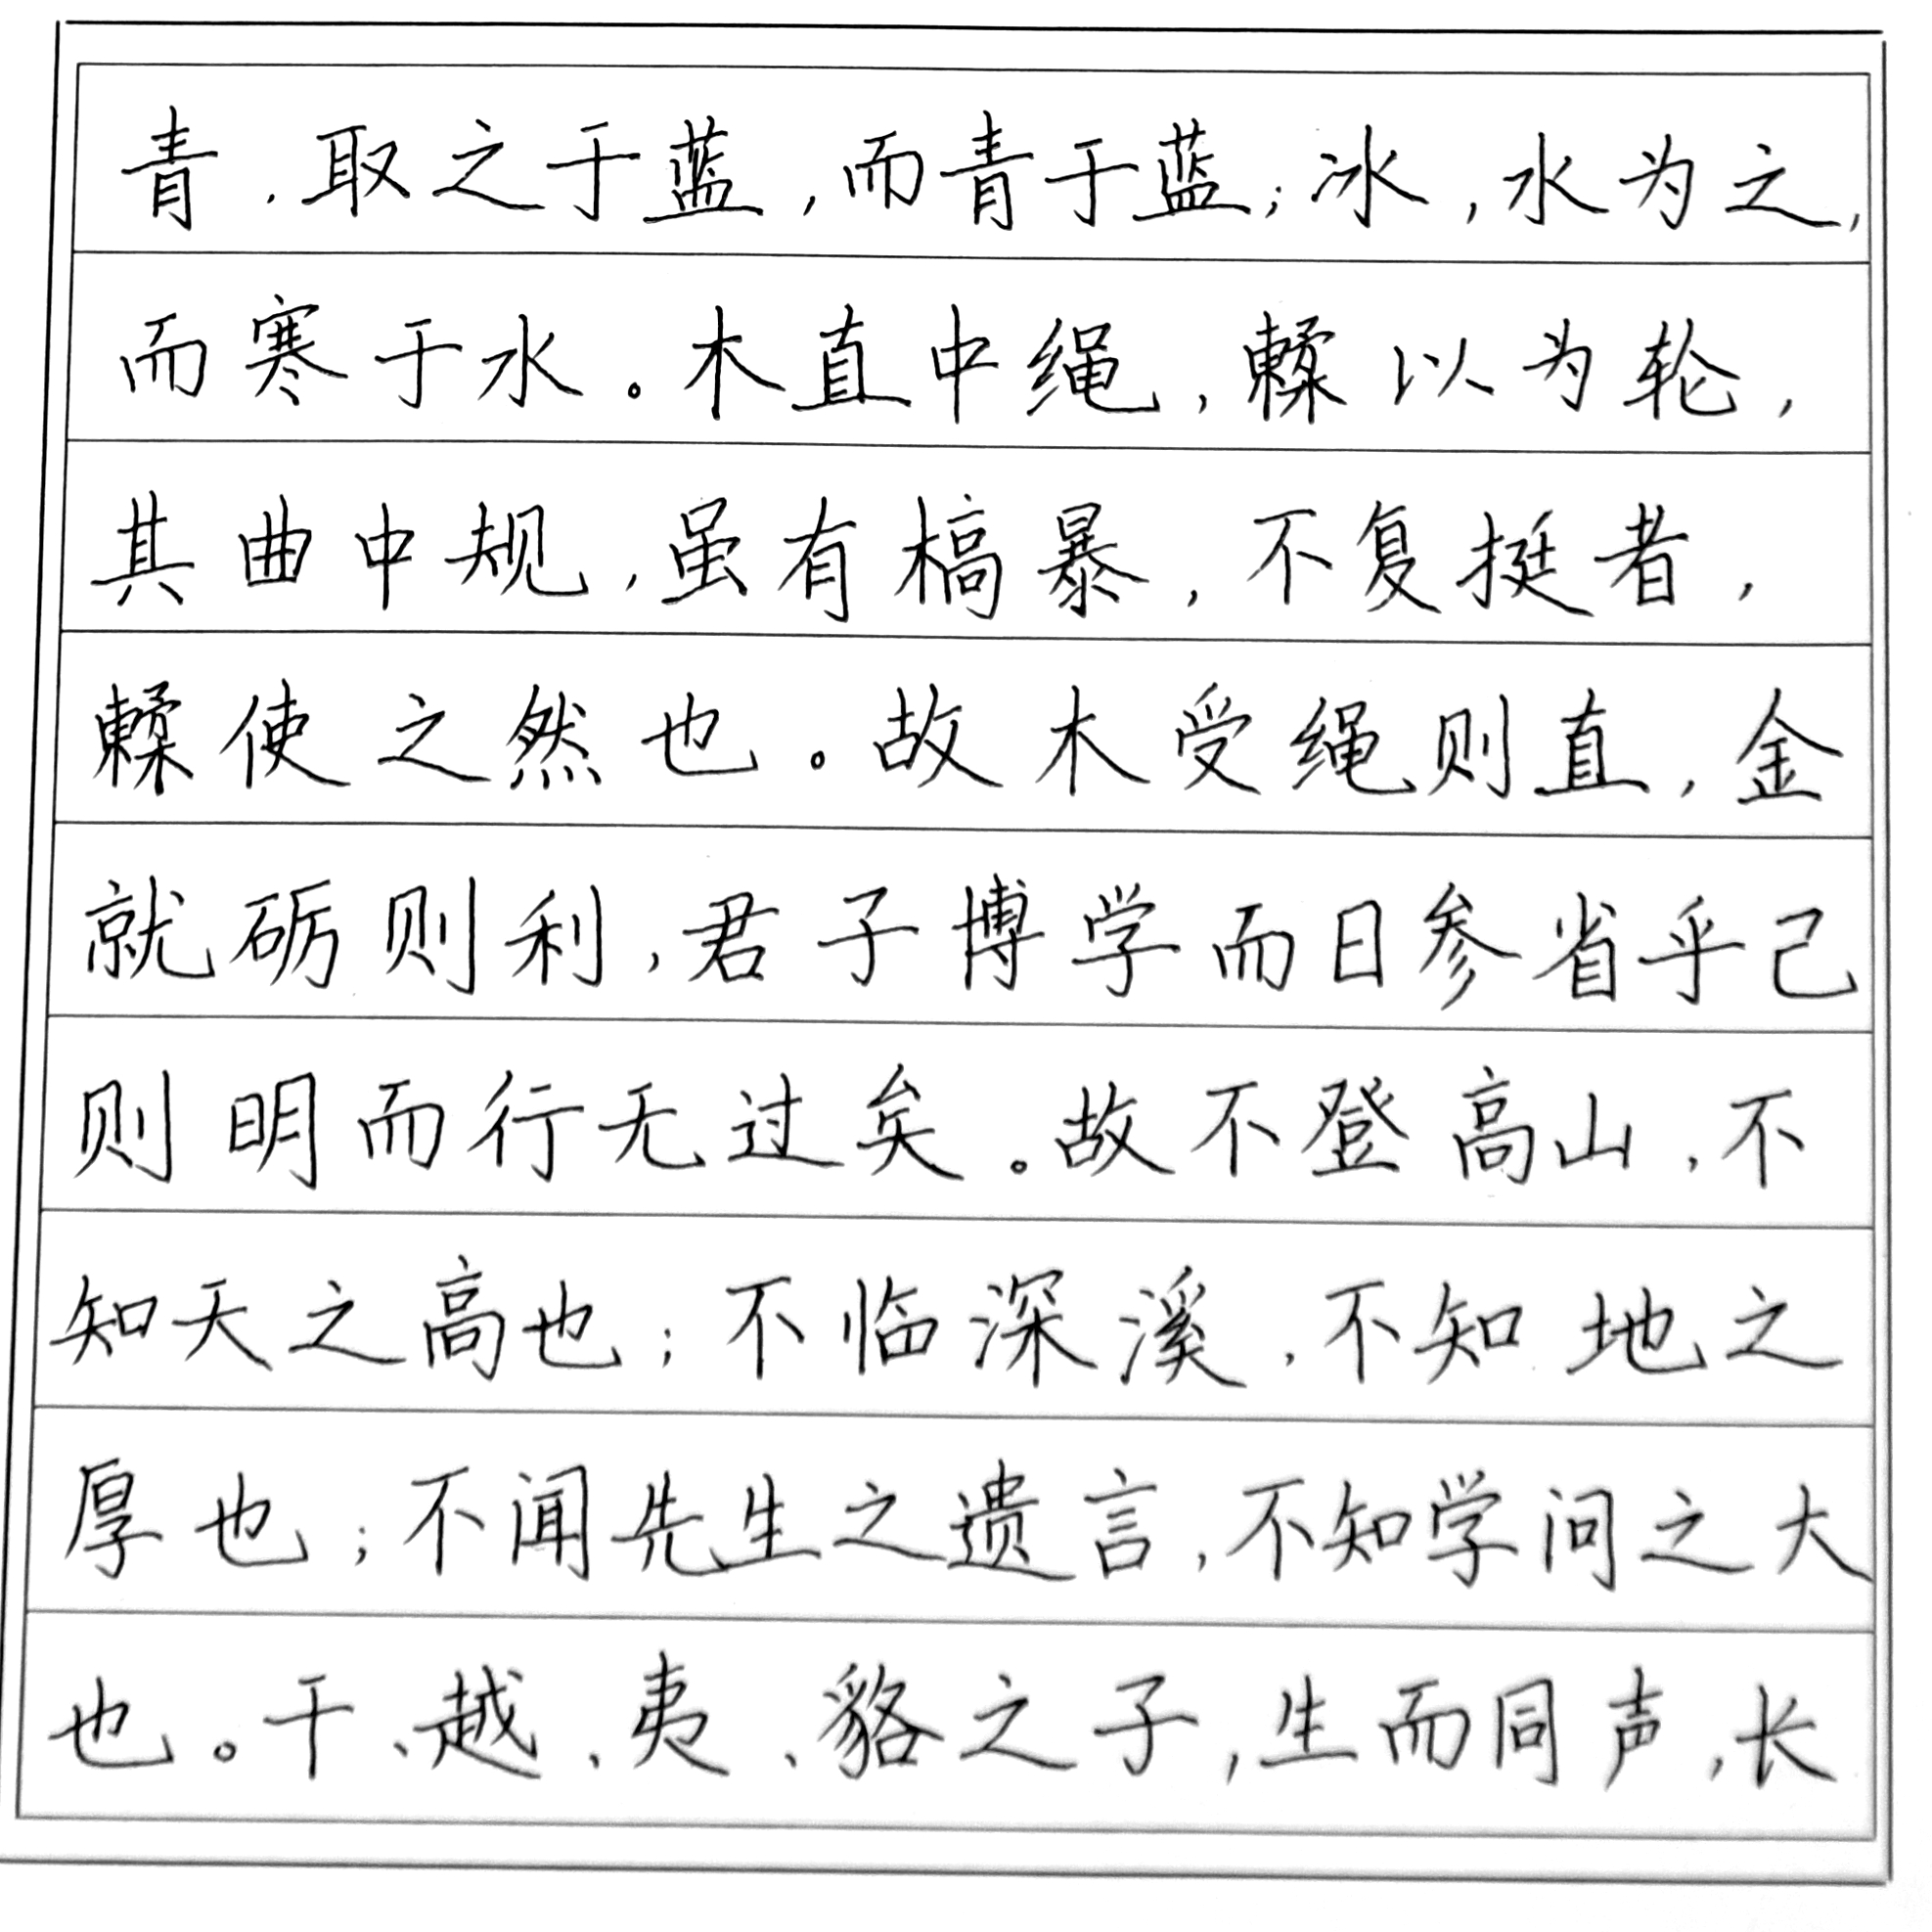 青，取之于蓝，而青于蓝；冰，水为之，
而寒于水。木直中绳，輮以为轮，
其曲中规，虽有槁暴，不复挺者，
輮使之然也。故木受绳则直，金
就砺则利，君子博学而日参省乎己
则明而行无过矣。故不登高山，不
知天之高也；不临深溪，不知地之
厚也；不闻先生之遗言，不知学问之大
也。干、越、夷、貉之子，生而同声，长